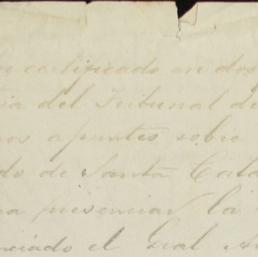 certificado en dos
del Tribunal de
apuntes sobre
do de Santa Cata
presenciar la
nciado el Gral